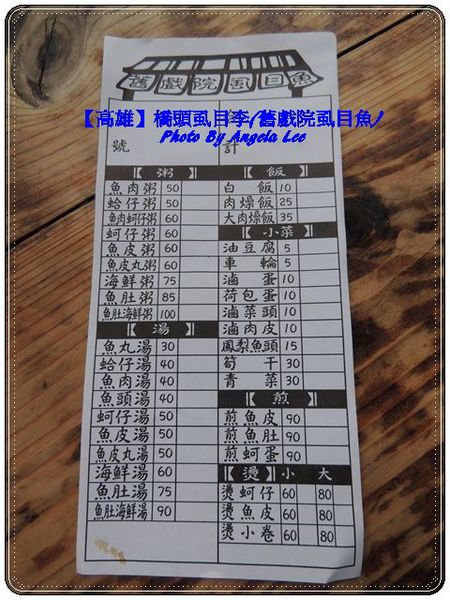 舊戲院虱目魚
【高雄】橋頭虱目李(舊戲院虱目魚)
Photo By Angela Lee
號 計
【粥】
魚肉粥 50
蛤仔粥 50
魚肉蚵仔粥 60
蚵仔粥 60
魚皮粥 60
魚皮丸粥 60
海鮮粥 75
魚肚粥 85
魚肚海鮮粥 100
【湯】
魚丸湯 30
蛤仔湯 40
魚肉湯 40
魚頭湯 40
蚵仔湯 50
魚皮湯 50
魚皮丸湯 50
海鮮湯 60
魚肚湯 75
魚肚海鮮湯 90
【飯】
白飯 10
肉燥飯 25
大肉燥飯 35
【小菜】
油豆腐 5
車輪 5
滷蛋 10
荷包蛋 10
滷菜頭 10
滷肉皮 10
鳳梨魚頭 15
筍干 30
青菜 30
【煎】
煎魚皮 90
煎魚肚 90
煎蚵蛋 90
【燙】小 大
燙蚵仔 60 80
燙魚皮 60 80
燙小卷 60 80